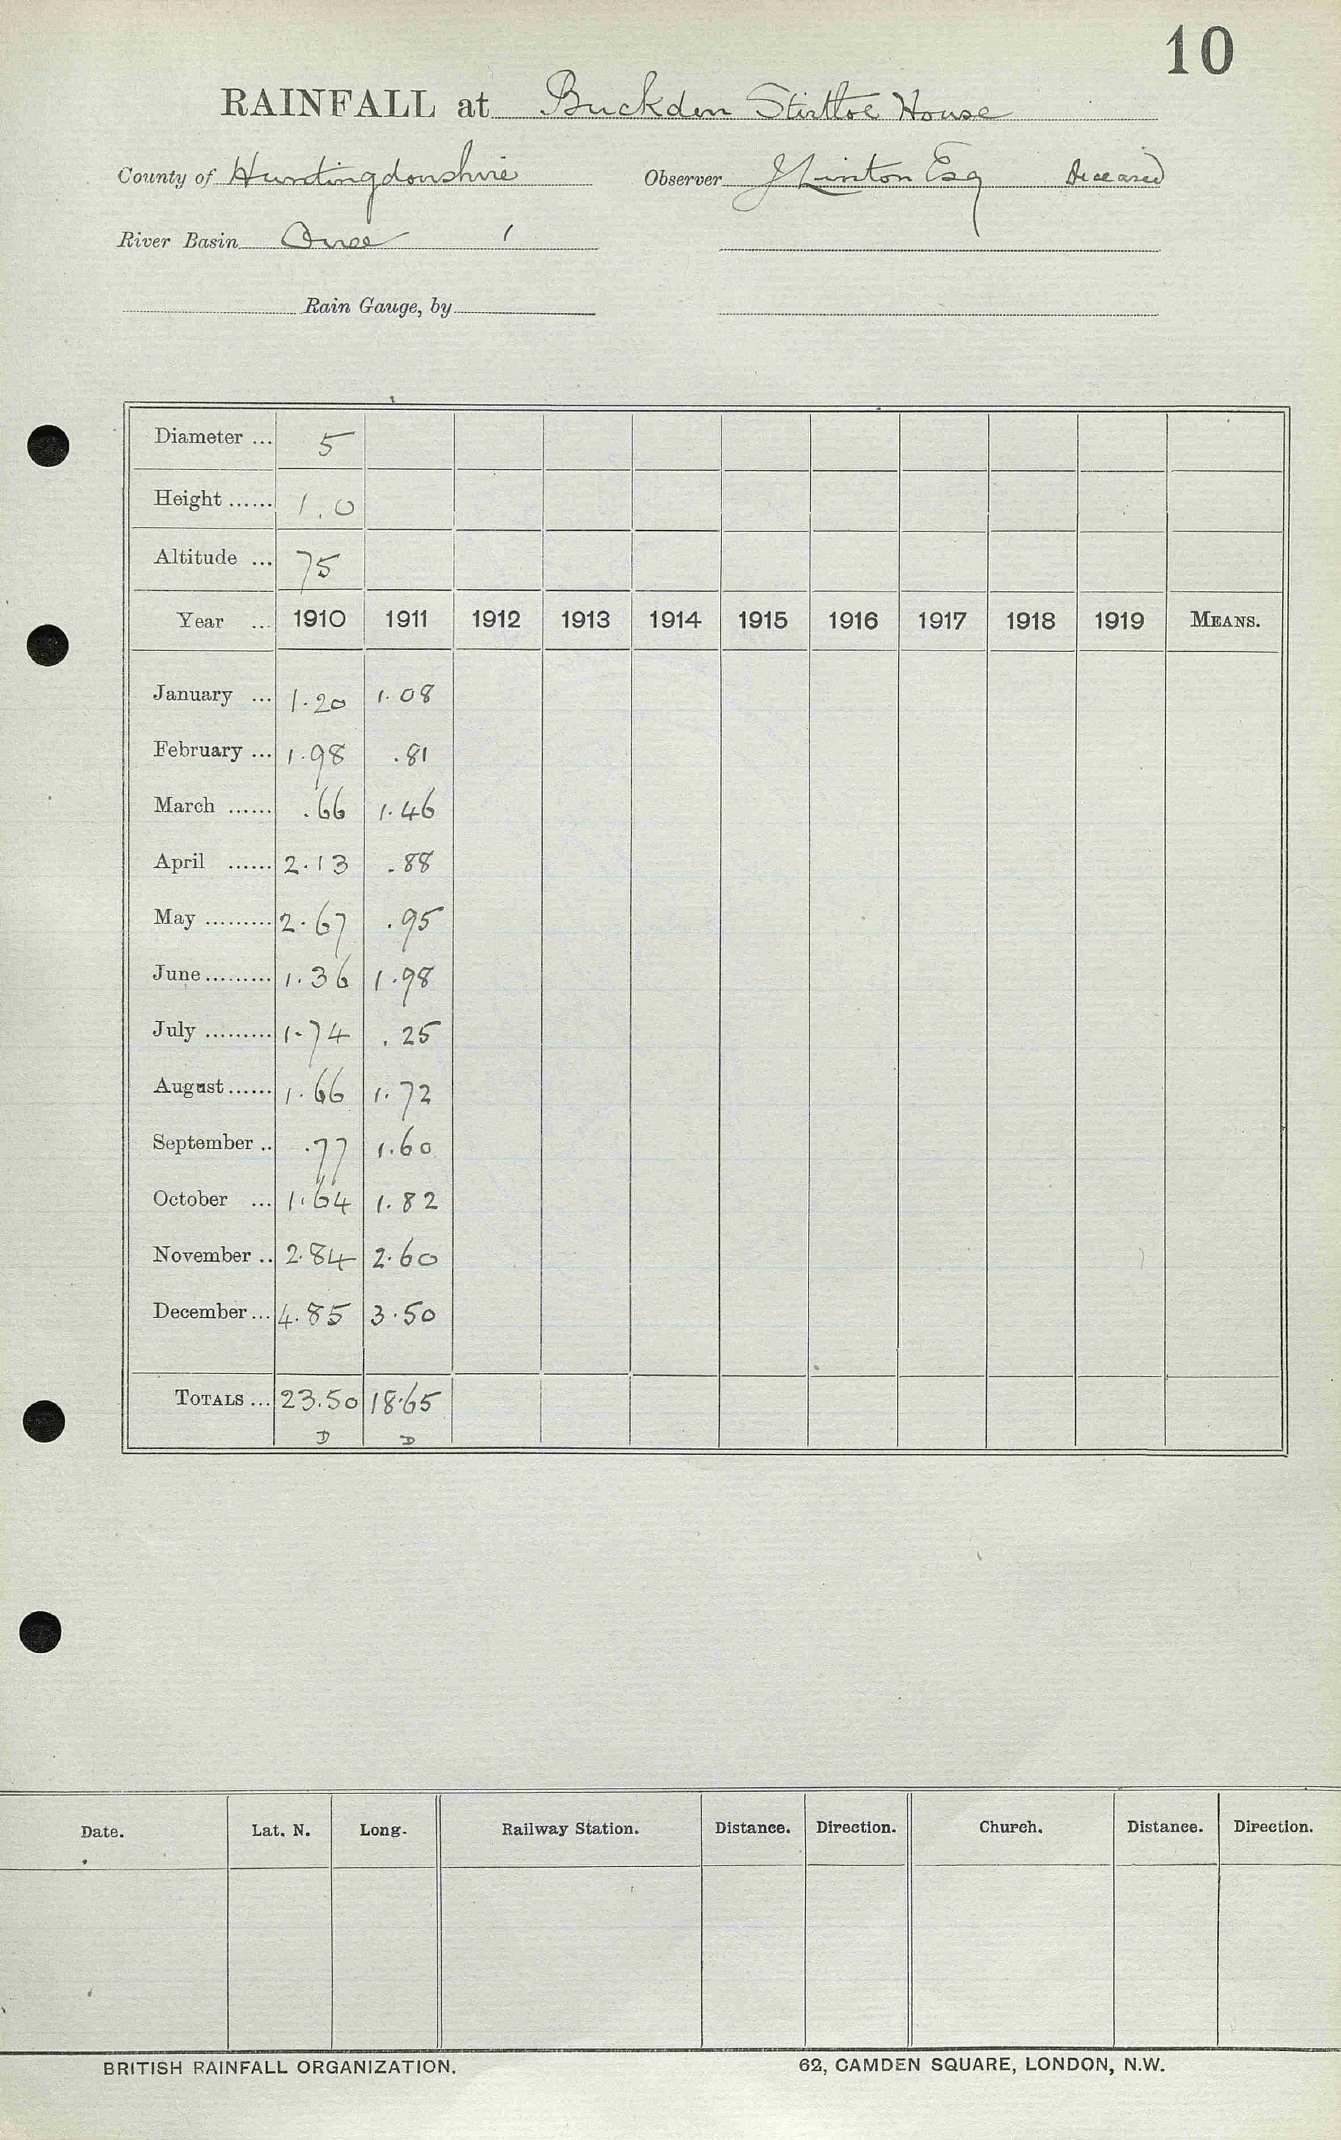 10
RAINFALL at Buckden Stirtloe House
County of Huntingdonshire Observer J Linton Esq Deceased
River Basin Ouse 1
Rain Gauge, by
Diameter ... 5
Height ...... 1.0
Altitude ... 75
Year ... 1910 1911 1912 1913 1914 1915 1916 1917 1918 1919 MEANS.
January ... 1.20 1.08
February ... 1.98 .81
March ...... .66 1.46
April ...... 2.13 .88
May ......... 2.67 .95
June ......... 1.36 1.98
July ......... 1.74 .25
August ...... 1.66 1.72
September .. .77 1.60
October ... 1.64 1.82
November .. 2.84 2.60
December ... 4.85 3.50
TOTALS ... 23.50 18.65
D D
Date. Lat. N. Long. Railway Station. Distance. Direction. Church. Distance. Direction.
BRITISH RAINFALL ORGANIZATION. 62, CAMDEN SQUARE, LONDON, N.W.